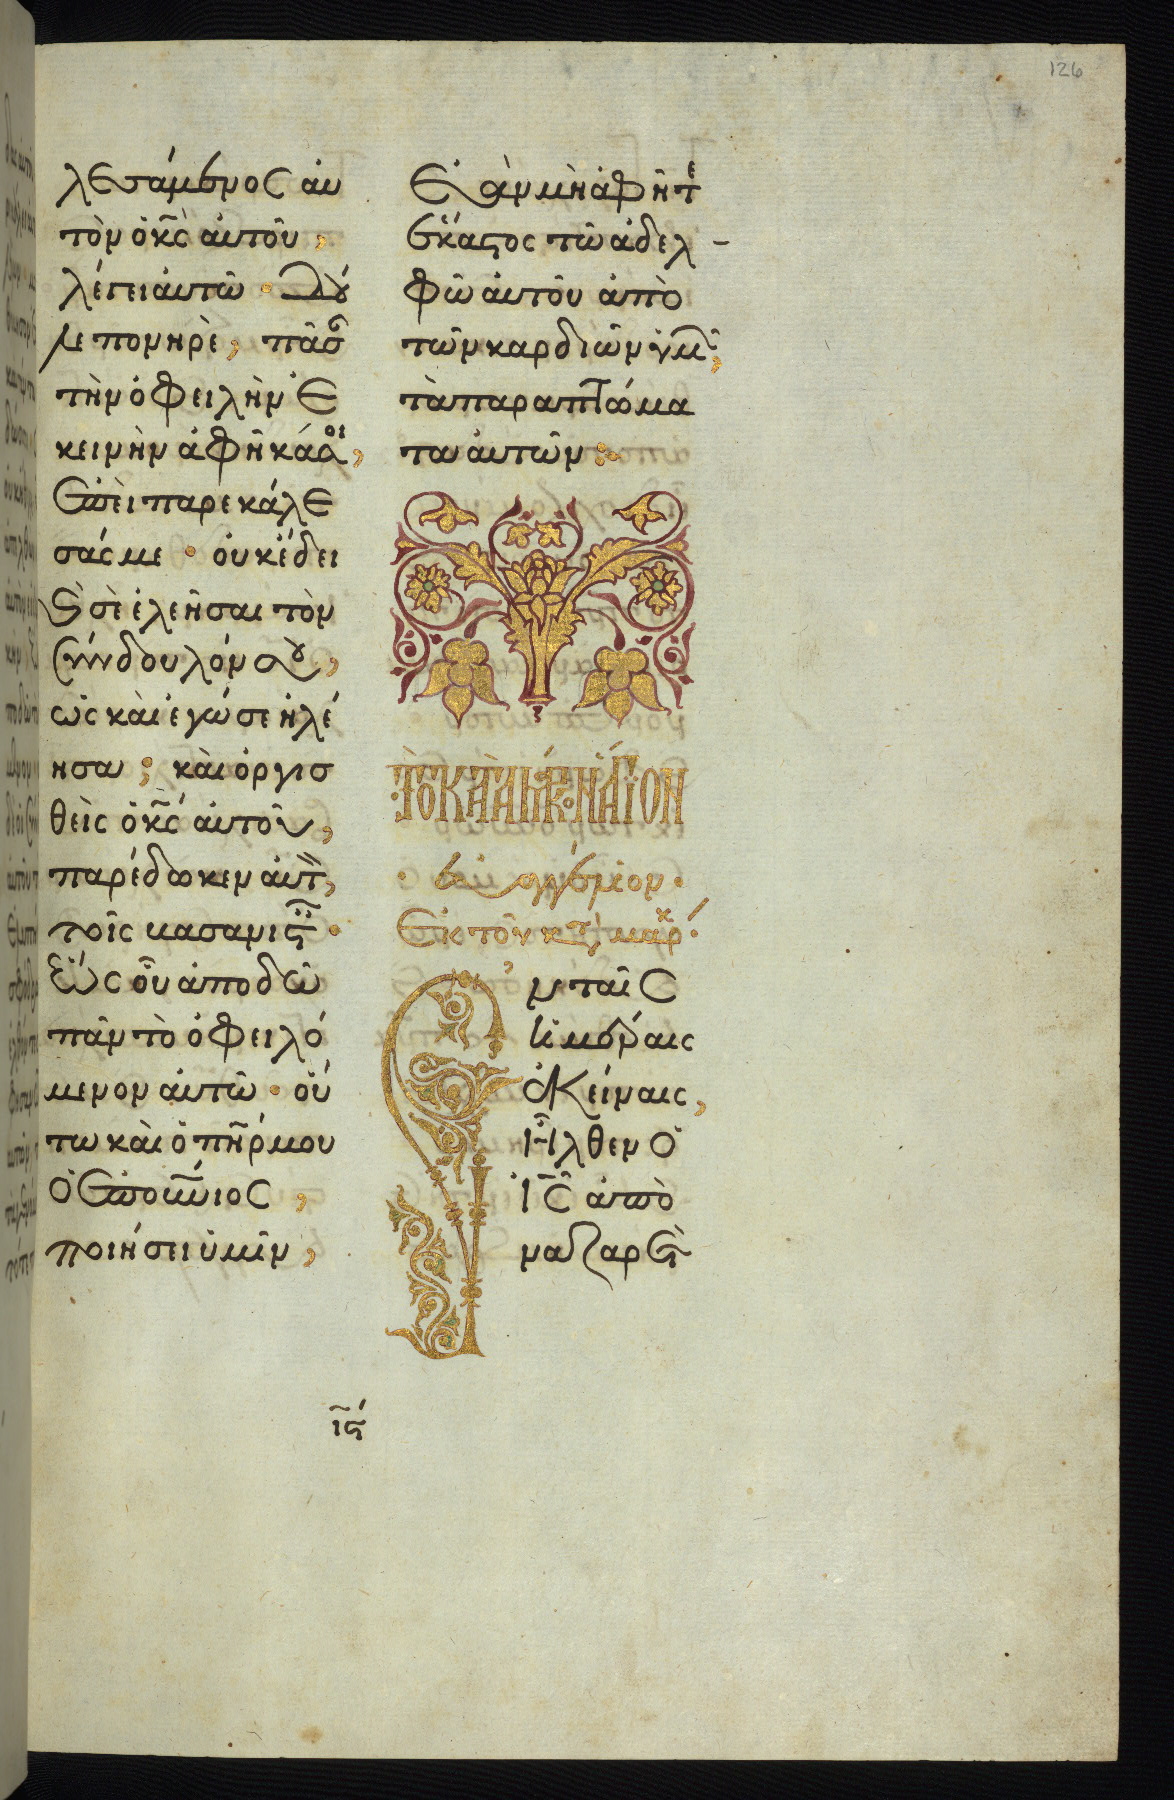 126
λεσάμενος αυ
τὸν ὁ κ̅ς̀ αὐτοῦ,
λέγει αὐτῶ · Δοῦ
λε πονηρὲ, πᾶσ
τὴν ὀφειλὴν ἐ
κεινὴν ἀφῆκά σοι,
ἐπεὶ παρεκάλε
σάς με · οὐκ ἔδει
ϗ̀ σὲ ἐλεῆσαι τὸν
σύνδουλόν σου,
ὡς καὶ ἐγώ σε ἠλέ
ησα ; καὶ ὀργισ
θεὶς ὁ κ̅ς́ αὐτοῦ,
παρέδωκεν αὐτ,
τοῖς βασανιστ ·
ἕως οὗ ἀποδῶ
πᾶν τὸ ὀφειλό
μενον αὐτῶ · οὕ
τω καὶ ὁ π̅ηρ μου
ὁ ἐπου̅νιος,
ποιήσει ὑμῖν,
ἐὰν μὴ ἀφῆτε
ἕκαστος τῶ ἀδελ-
φῶ αὐτοῦ ἀπὸ
τῶν καρδιῶν ὑμ,
τὰ παραπτώμα
τα αὐτῶν :
εὐαγγέλιον ·
Ἐκ τοῦ κατ μάρκ
ν ταῖς
ἡμέραις
ἐκείναις,
ἦλθεν ὁ
ἰ̅ς̅ ἀπὸ
ναζαρὲτ
ις́